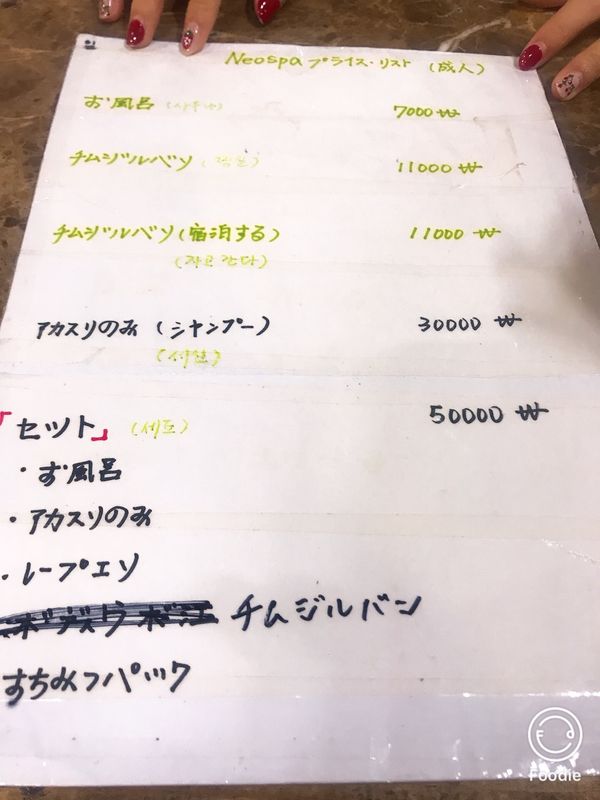 Neospa プライス・リスト (成人)
お風呂 (사우나) 7000 ₩
チムジルバソ (찜질) 11000 ₩
チムジルバソ (宿泊する) 11000 ₩
(자고 간다)
アカスリのみ (シャンプー) 30000 ₩
「セット」 (세트) 50000 ₩
・お風呂
・アカスリのみ
・レープエソ
チムジルバン
すちみつパック
Foodie